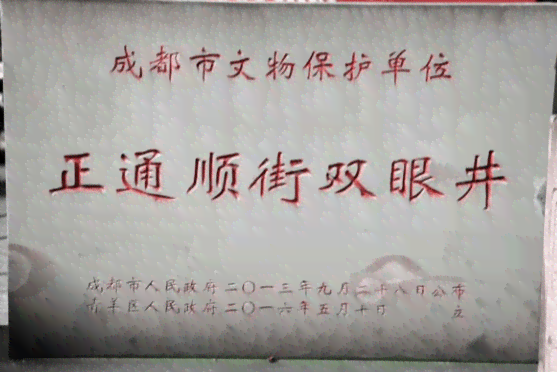 成都市文物保护单位
正通顺街双眼井
成都市人民政府二〇一三年九月二十八日公布
青羊区人民政府二〇一六年五月十日 立